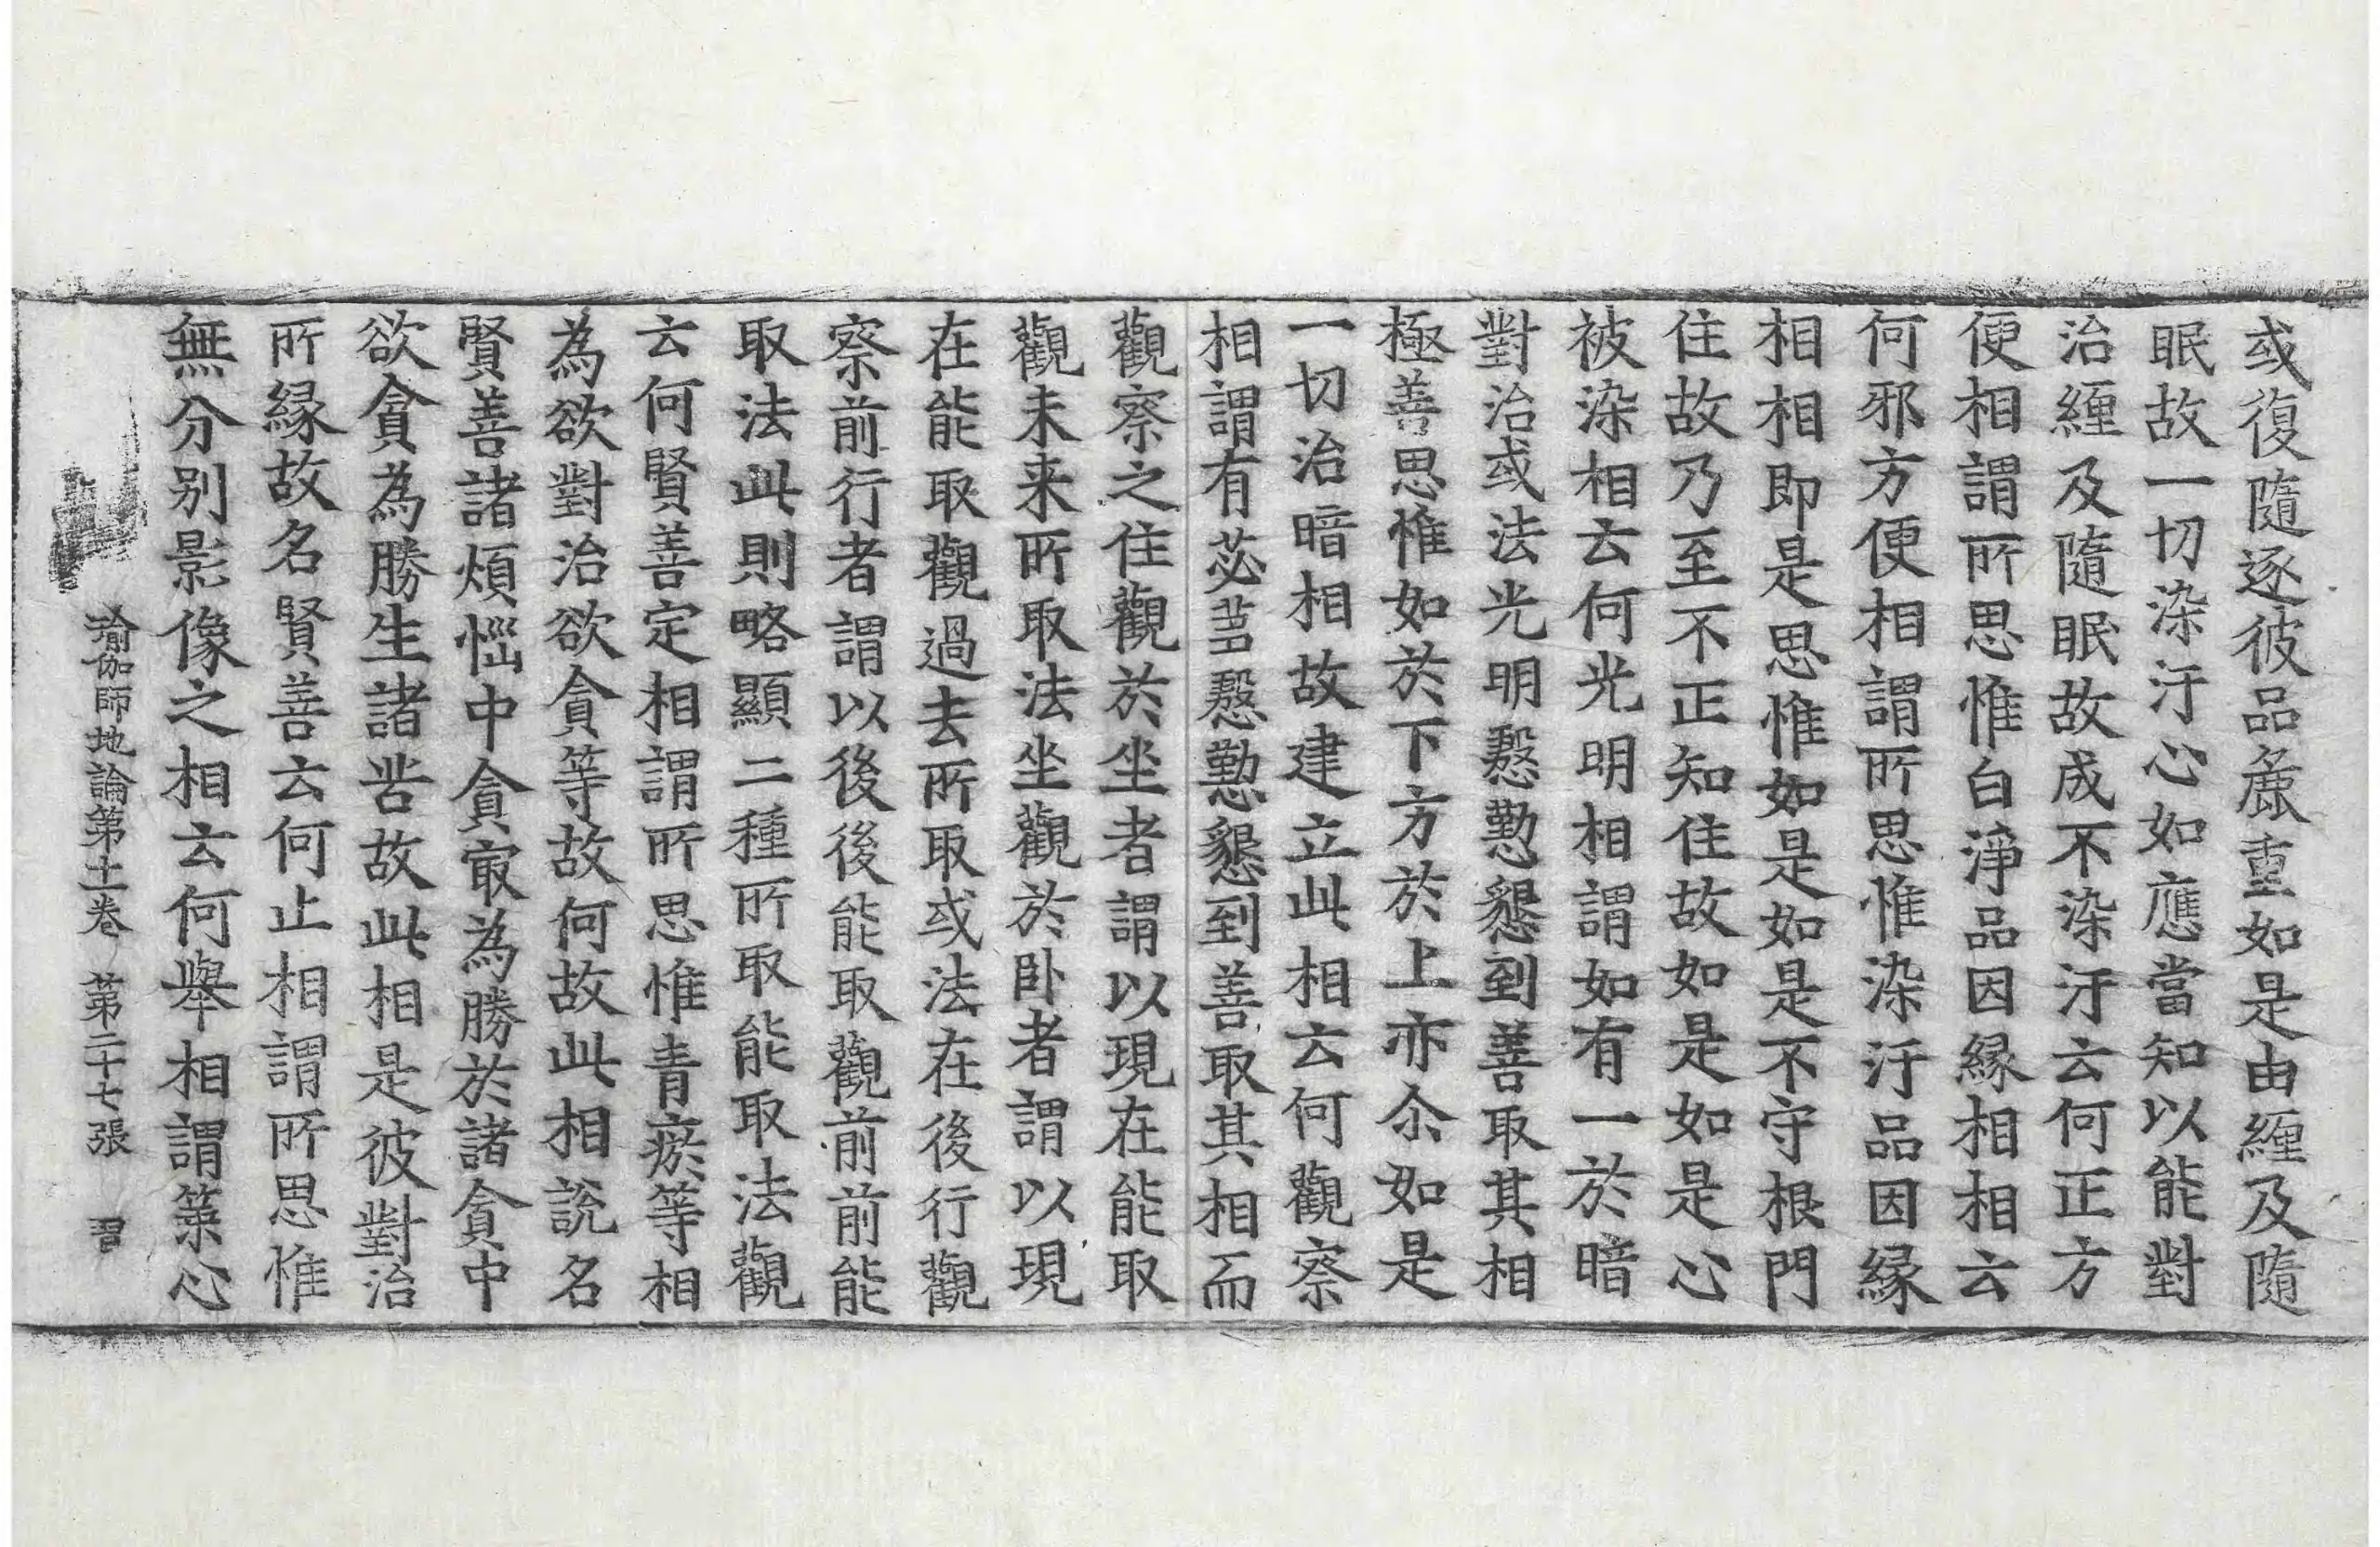 或復隨逐彼品麁重如是由纒及隨
眠故一切染汙心如應當知以能對
治纒及隨眠故成不染汙云何正方
便相謂所思惟白淨品因縁相相云
何邪方便相謂所思惟染汙品因縁
相相即是思惟如是如是不守根門
住故乃至不正知住故如是如是心
被染相云何光明相謂如有一於暗
對治或法光明慇懃懇到善取其相
極善思惟如於下方於上亦尒如是
一切治暗相故建立此相云何觀察
相謂有苾芻慇懃懇到善取其相而
觀察之住觀於坐者謂以現在能取
觀未来所取法坐觀於卧者謂以現
在能取觀過去所取或法在後行觀
察前行者謂以後後能取觀前前能
取法此則略顯二種所取能取法觀
云何賢善定相謂所思惟青瘀等相
為欲對治欲貪等故何故此相說名
賢善諸煩惱中貪㝡為勝於諸貪中
欲貪為勝生諸苦故此相是彼對治
所縁故名賢善云何止相謂所思惟
無分别影像之相云何舉相謂策心
瑜伽師地論第十一卷 第二十七張